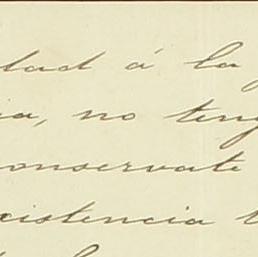 dad á la
ia, no teng
conservate
xistencia